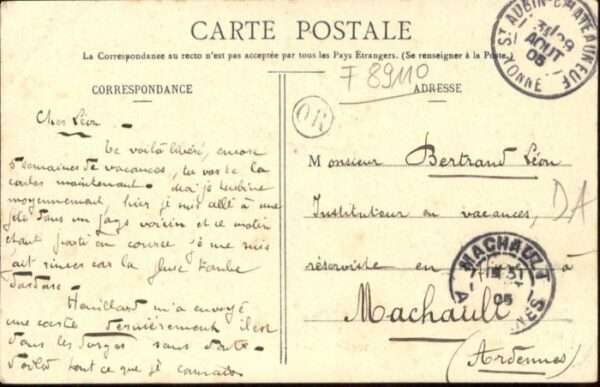 CARTE POSTALE
La Correspondance au recto n'est pas acceptée par tous les Pays Étrangers. (Se renseigner à la Poste.)
CORRESPONDANCE
ADRESSE
F 89110
OR
ST AUBIN-CHATEAUNEUF
YONNE
AOUT
05
Cher Léon
Te voilà libéré, encore
5 semaines de vacances, tu vas te la
moyennement, hier je suis allé à une
fête dans un pays voisin et ce matin
étant parti en course je me suis
fait rincer car la pluie tombe
m'a envoyé
une carte dernièrement il est
dans les Vosges sans doute
Voilà tout ce que je connais
Monsieur Bertrand Léon
Instituteur en vacances,
DA
réserviste en à
MACHAULT
31
05
Machault
(Ardennes)